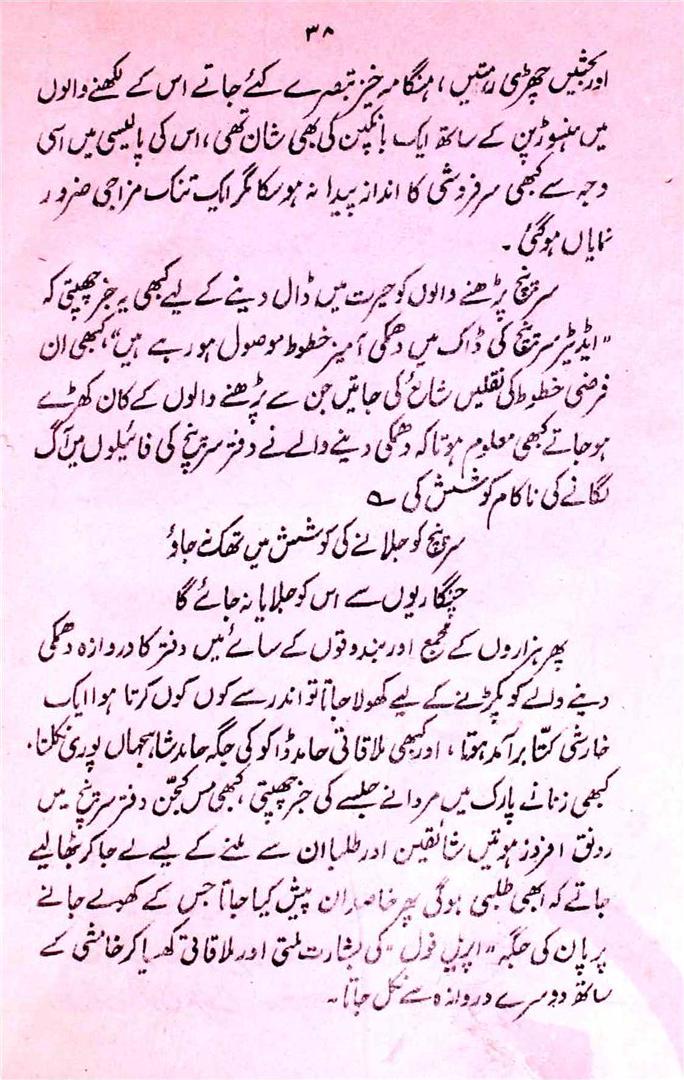 ۳۸
اور بحثیں چھڑی رہتیں، ہنگامہ خیز تبصرے کئے جاتے اس کے لکھنے والوں
میں ہنسوڑپن کے ساتھ ایک بانکپن کی بھی شان تھی، اس کی پالیسی میں اسی
وجہ سے کبھی سرفروشی کا انداز پیدا نہ ہوسکا مگر ایک تنک مزاجی ضرور
نمایاں ہوگئی۔
سرپنچ پڑھنے والوں کو حیرت میں ڈال دینے کے لیے کبھی یہ خبر چھپتی کہ
"ایڈیٹر سرپنچ کی ڈاک میں دھمکی آمیز خطوط موصول ہو رہے ہیں"، کبھی ان
فرضی خطوط کی نقلیں شائع کی جاتیں جن سے پڑھنے والوں کے کان کھڑے
ہوجاتے کبھی معلوم ہوتا کہ دھمکی دینے والے نے دفتر سرپنچ کی فائیلوں میں آگ
لگانے کی ناکام کوشش کی ؎
سرپنچ کو جلانے کی کوشش میں تھک نہ جاؤ
چنگاریوں سے اس کو جلایا نہ جائے گا
پھر ہزاروں کے مجمع اور بندوقوں کے سائے میں دفتر کا دروازہ دھمکی
دینے والے کو پکڑنے کے لیے کھولا جاتا تو اندر سے کوں کوں کرتا ہوا ایک
خارشی کتّا برآمد ہوتا، اور کبھی ملاقاتی حامد ڈاکو کی جگہ حامد شاہجہاں پوری نکلتا۔
کبھی زنانے پارک میں مردانے جلسے کی خبر چھپتی، کبھی مس کجّن دفتر سرپنچ میں
رونق افروز ہوتیں شائقین اور طلبا ان سے ملنے کے لیے لے جاکر بٹھالیے
جاتے کہ ابھی طلبی ہوگی پھر خاصدان پیش کیا جاتا جس کے کھولے جانے
پر پان کی جگہ "اپریل فول" کی بشارت ملتی اور ملاقاتی کھسیا کر خامشی کے
ساتھ دوسرے دروازہ سے نکل جاتا۔